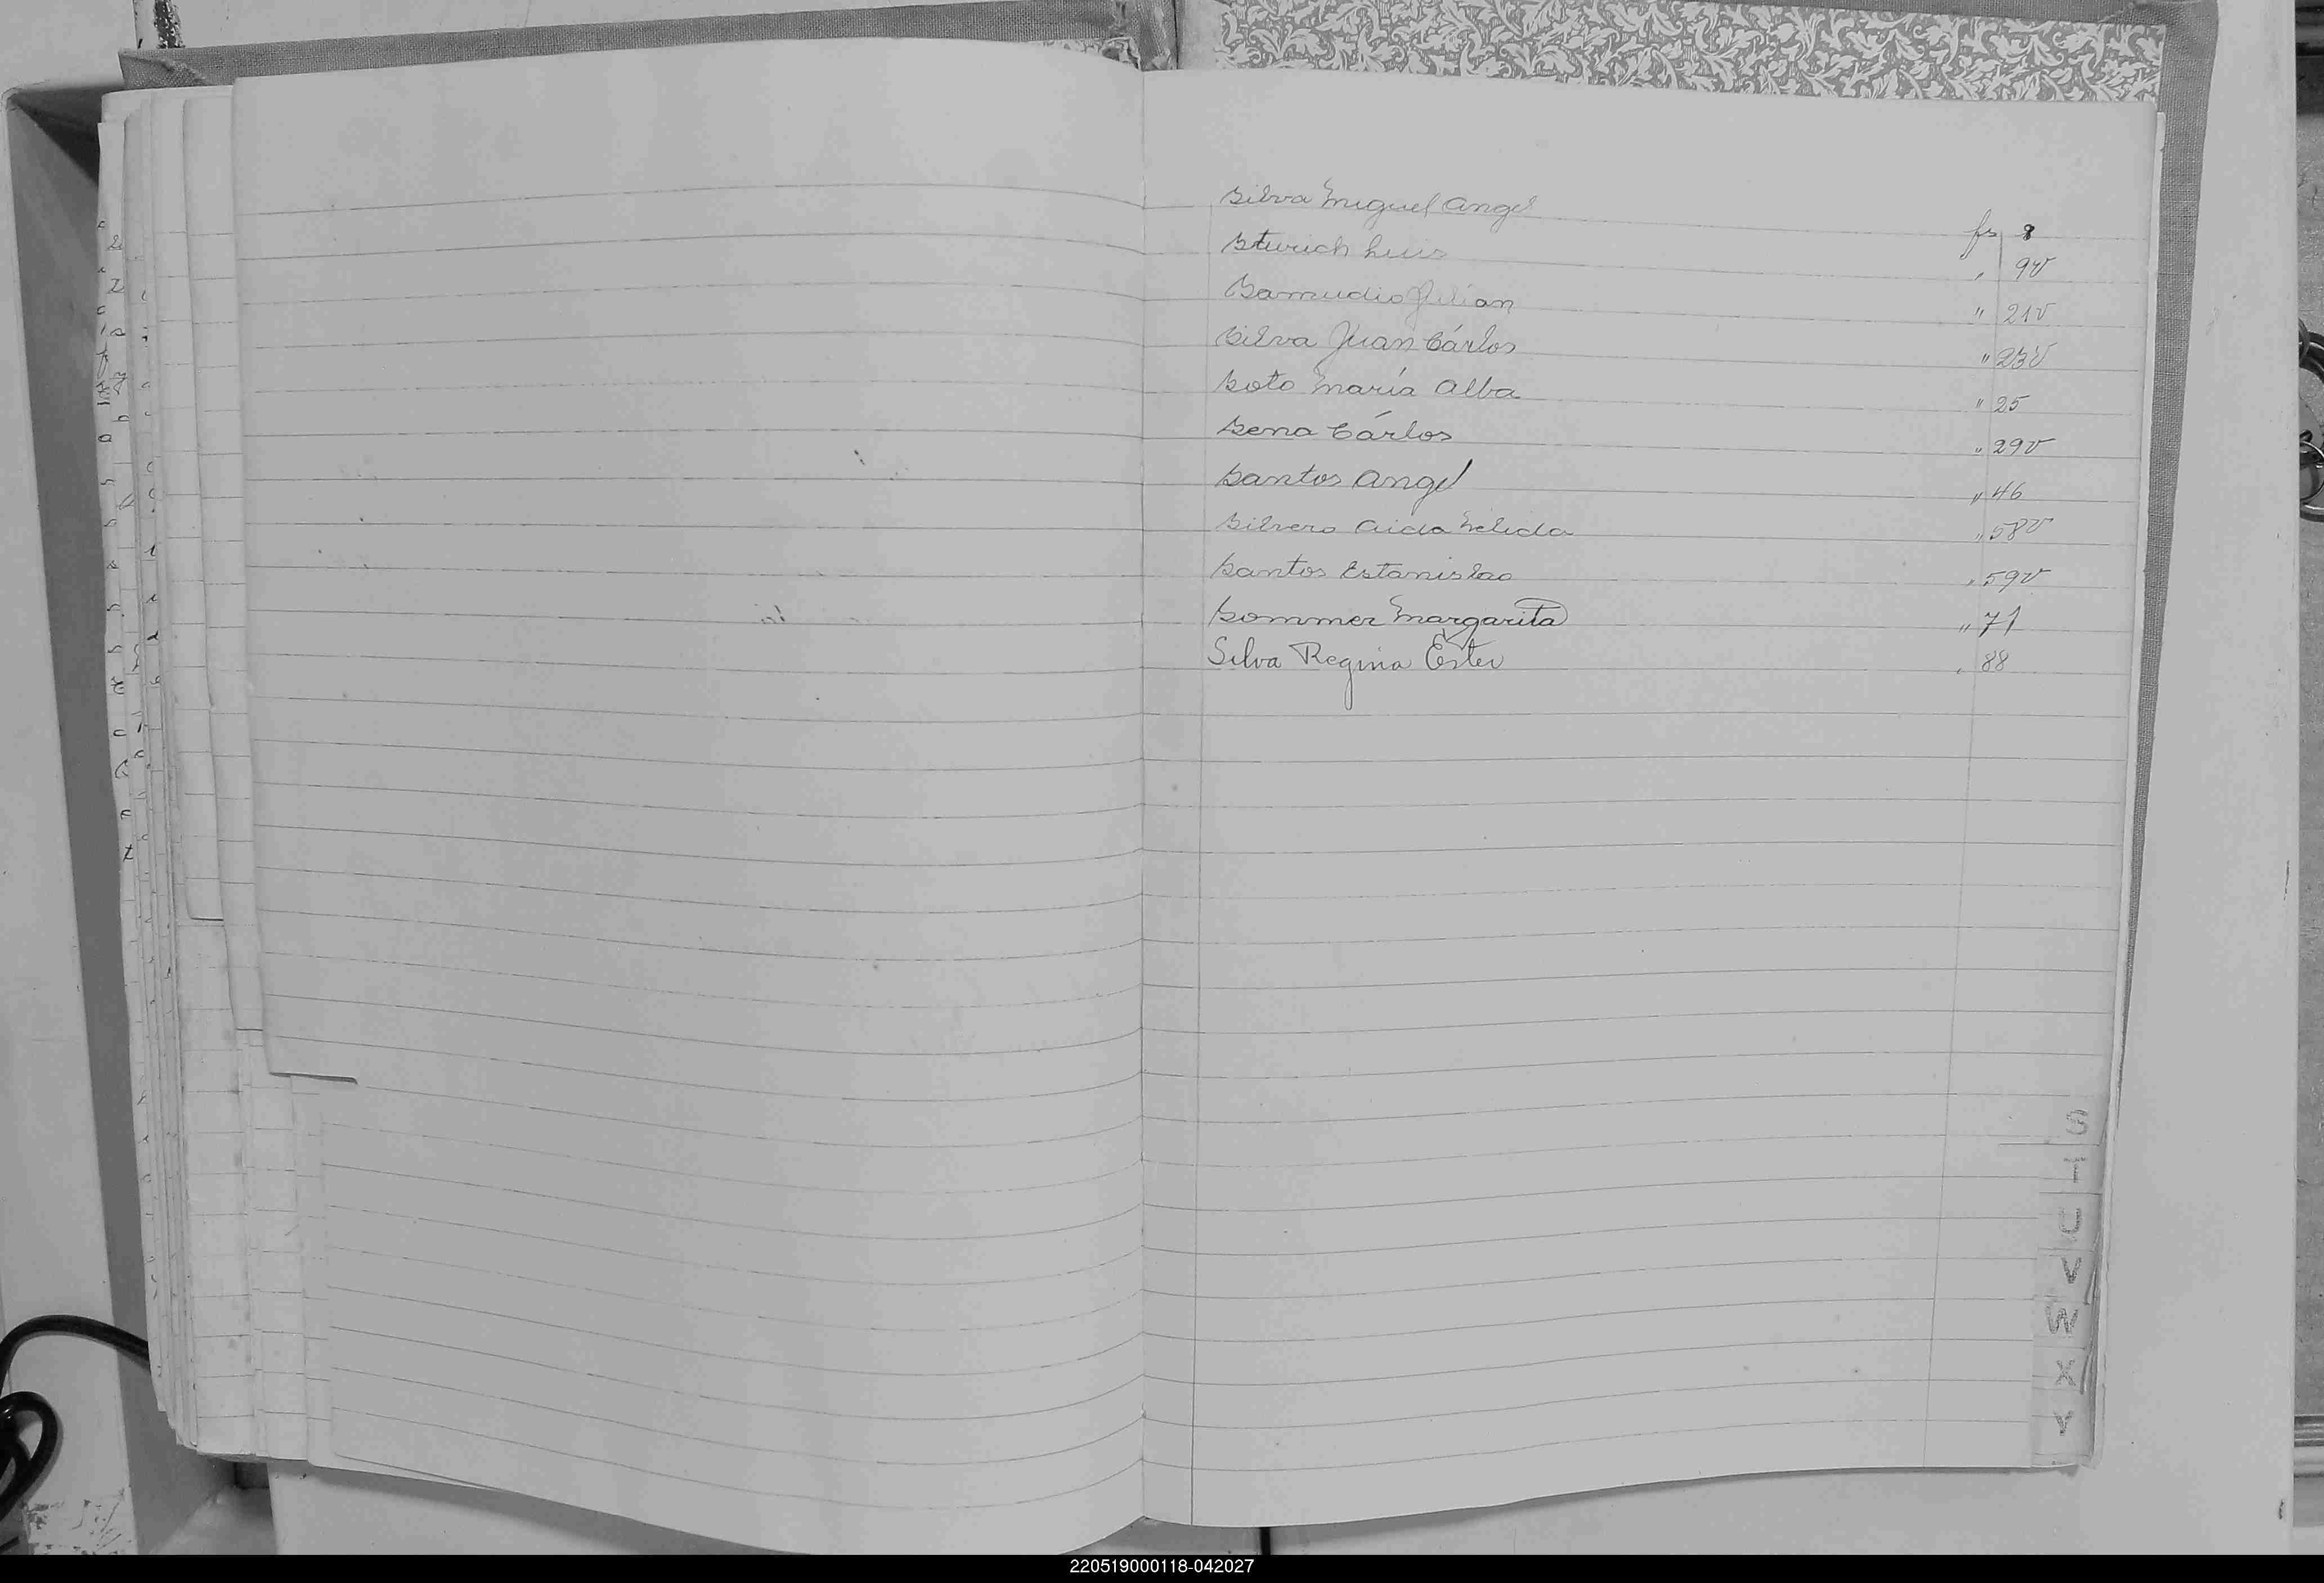 Silva Miguel Angel fs 8
Sturich Luis " 9v
Samudio Julian " 21v
Silva Juan Cárlos " 23v
Soto María Alba " 25
Sena Cárlos " 29v
Santos Angel " 46
Silvero Aida Nélida " 58v
Santos Estanislao " 59v
Sommer Margarita " 71
Silva Regina Ester " 88
S
T
U
V
W
X
Y
220519000118-042027